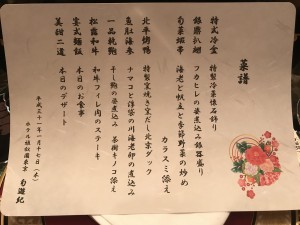 菜譜
特式冷盆　特製冷菜懐石飾り
銀露扒翅　フカヒレの姿煮込み銀器盛り
旬菜蝦帯　海老と帆立と季節野菜の炒め
カラスミ添え
北平烤鴨　特製窯焼き窯だし北京ダック
魚肚海参　ナマコと浮袋の川海老卵の煮込み
一品乾鮑　干し鮑の姿煮込み　茶樹キノコ添え
松露和牛　和牛フィレ肉のステーキ
宴式麺飯　本日のお食事
美甜二道　本日のデザート
平成三十一年一月十七日（木）
ホテル雅叙園東京
旬遊紀